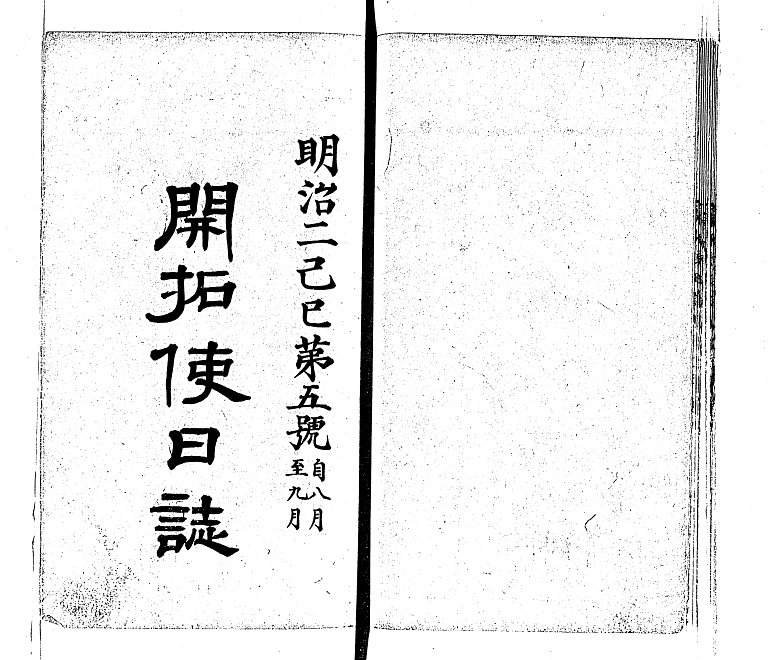 明治二己巳第五號
自八月
至九月
開拓使日誌